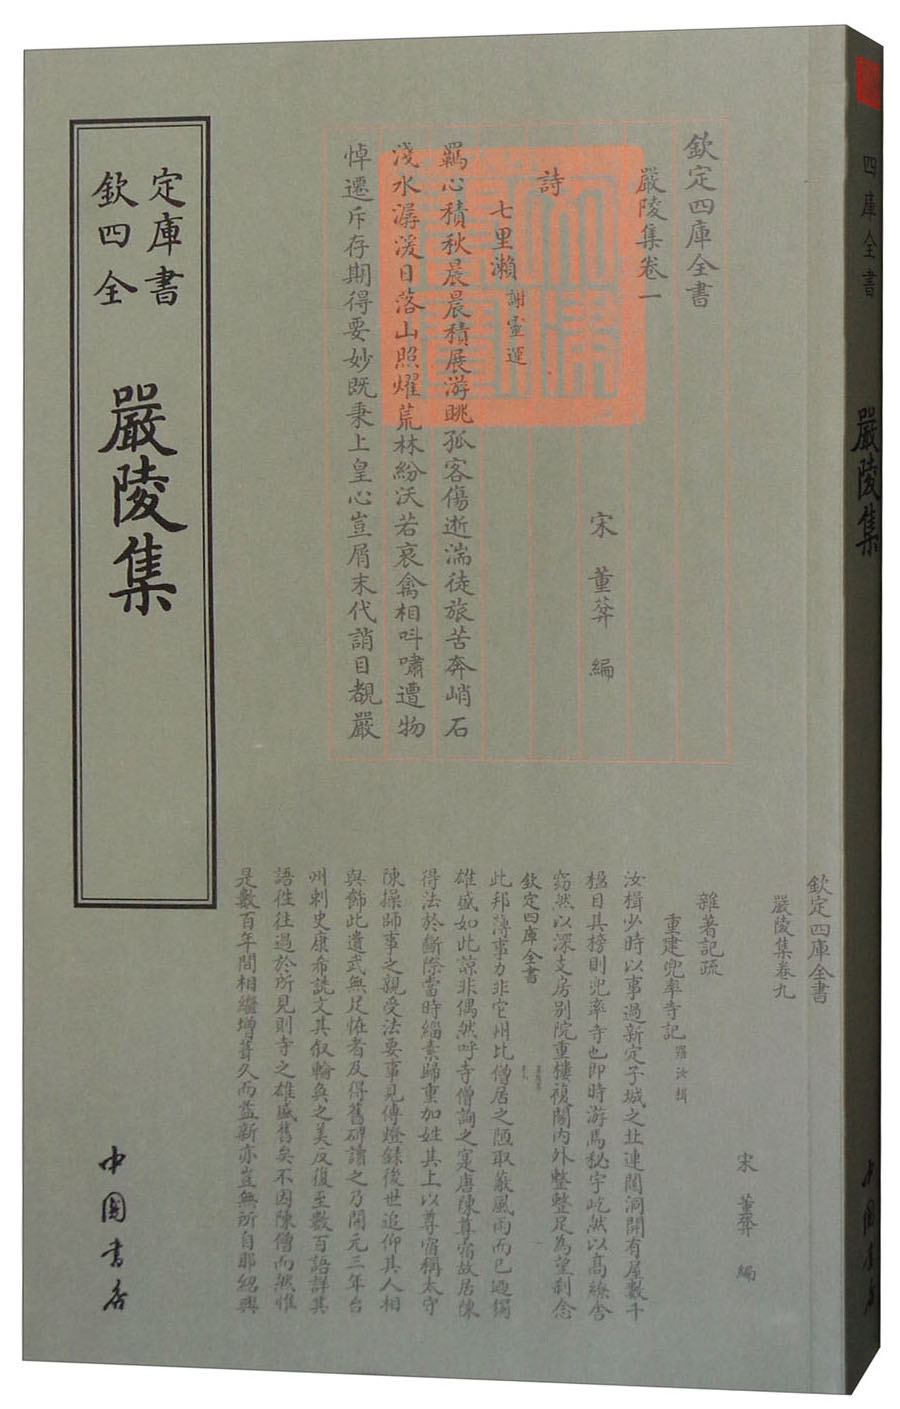 欽定四庫全書
嚴陵集
中國書店
欽定四庫全書
嚴陵集卷一
宋 董棻 編
詩
七里瀨 謝靈運
羈心積秋晨晨積展游眺孤客傷逝湍徒旅苦奔峭石
淺水潺湲日落山照燿荒林紛沃若哀禽相叫嘯遭物
悼遷斥存期得要妙既秉上皇心豈屑末代誚目覩嚴
欽定四庫全書
嚴陵集卷九
宋 董棻 編
雜著記疏
重建兜率寺記 羅汝楫
汝楫少時以事過新定子城之北連闥洞開有屋數千
楹目其榜則兜率寺也即時游焉秘宇屹然以高繚舎
窈然以深支房别院重樓複閣内外整整足為望刹念
欽定四庫全書
此邦薄事力非它州比僧居之陋取蔽風雨而已廼獨
雄盛如此諒非偶然呼寺僧詢之寔唐陳尊宿故居陳
得法於斷際當時緇素歸重加姓其上以尊宿稱太守
陳操師事之親受法要事見傳燈録後世追仰其人相
與飾此遺武無足恠者及得舊碑讀之乃開元三年台
州刺史康希詵文其叙輪奐之美反復至數百語詳其
語徃往過於所見則寺之雄盛舊矣不因陳僧而然惟
是數百年間相繼增葺久而益新亦豈無所自耶紹興
四庫全書
嚴陵集
中國書店